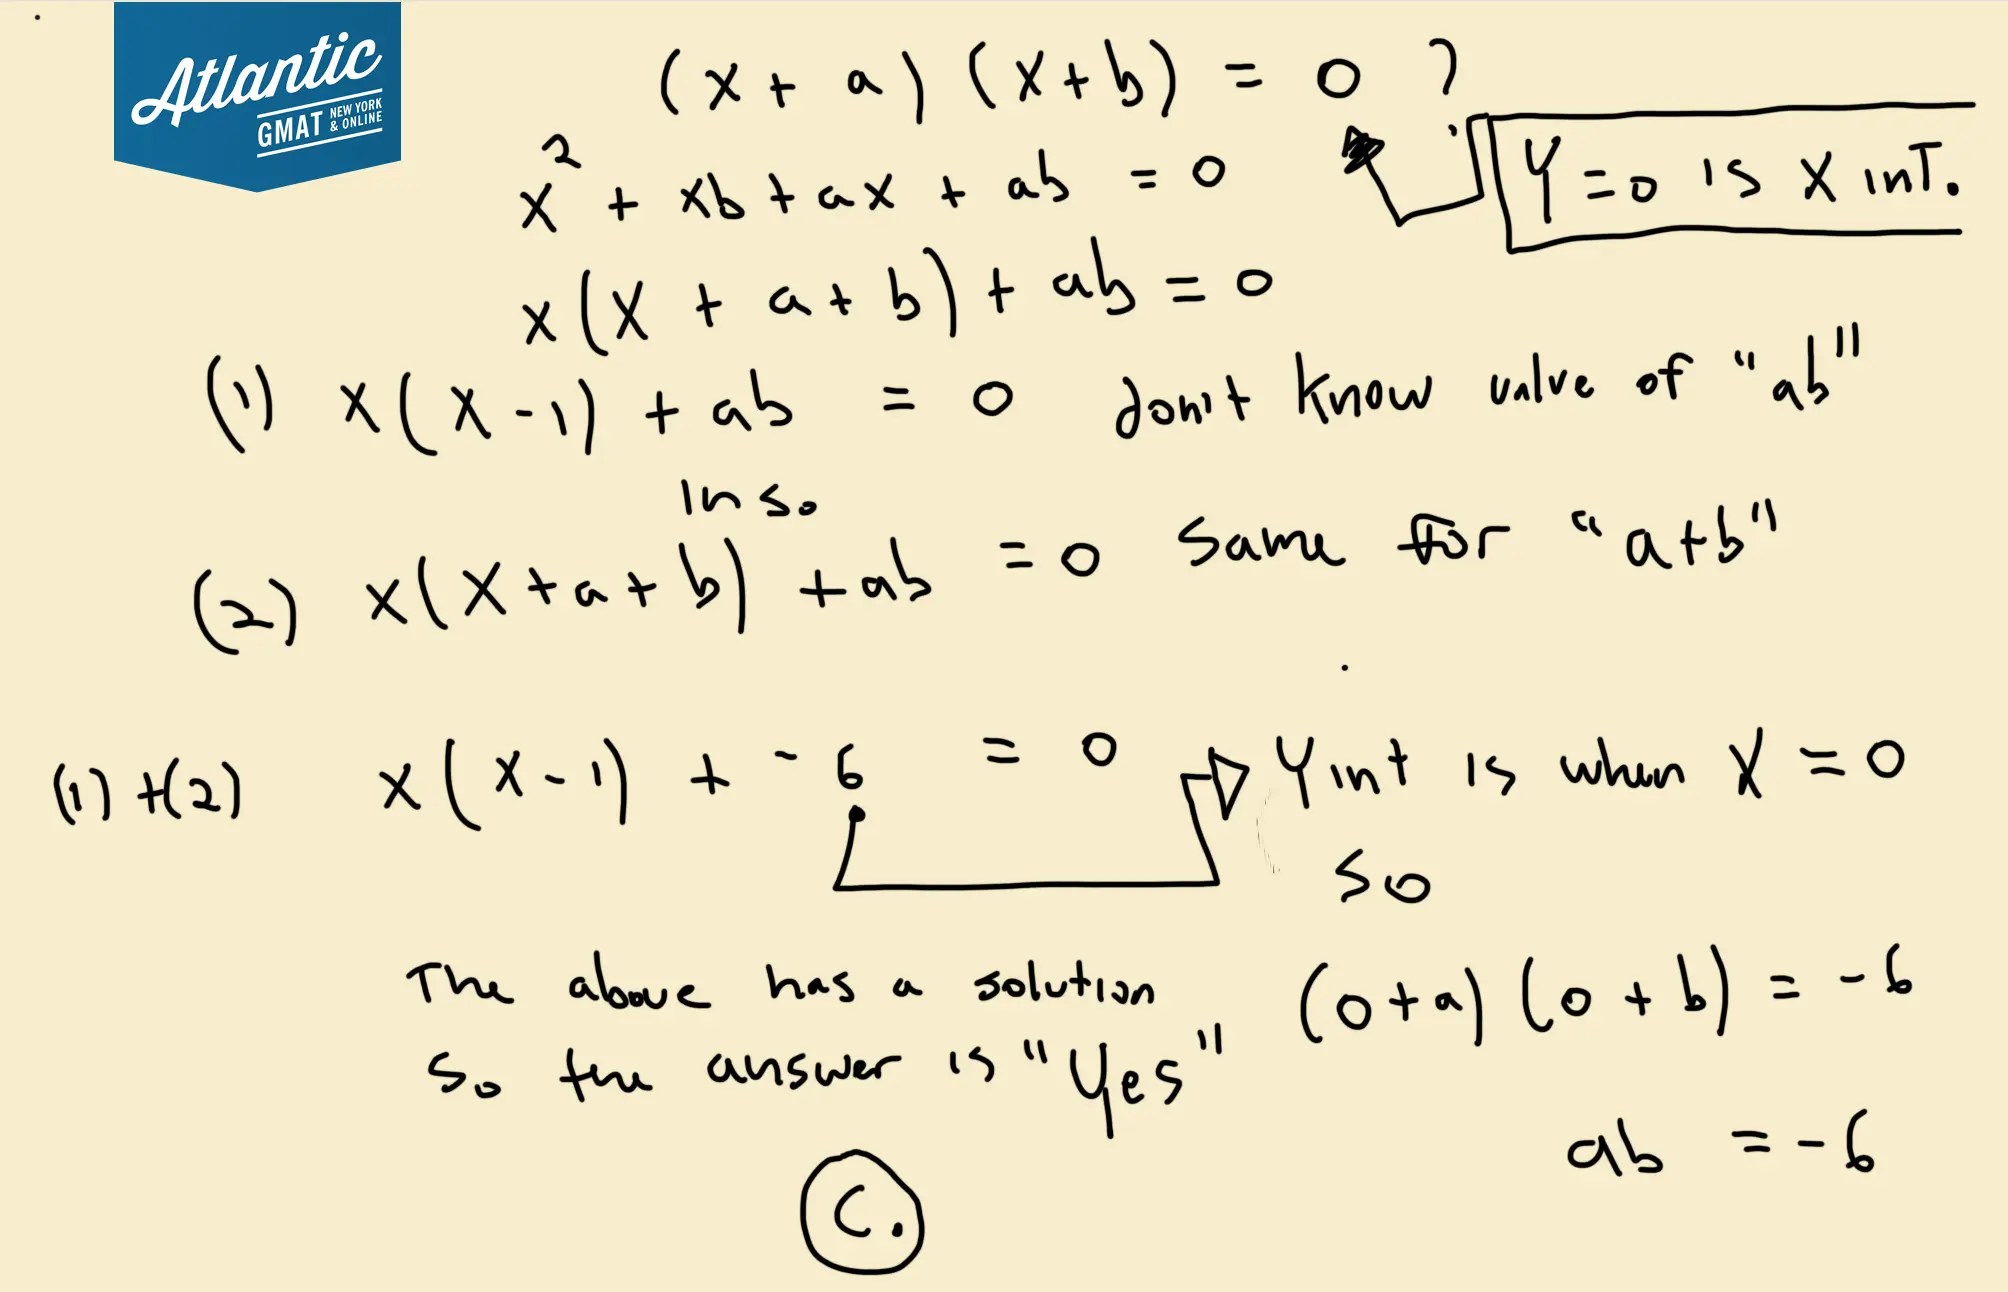 Atlantic
GMAT NEW YORK & ONLINE
(x + a) (x + b) = 0 ?
x² + xb + ax + ab = 0
Y = 0 is X inT.
x(x + a + b) + ab = 0
(1) x(x - 1) + ab = 0 don't know value of "ab"
Inso
(2) x(x + a + b) + ab = 0 same for "a+b"
(1) +(2) x(x - 1) + - 6 = 0 Y int is when X = 0
so
The above has a solution (0 + a) (0 + b) = - 6
So the answer is "Yes"
ab = - 6
C.